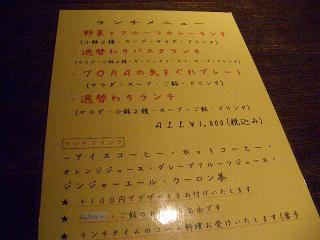 ランチメニュー
・野菜とフルーツカレーランチ
(小鉢2種・スープ・サラダ・ドリンク)
・週替わりパスタランチ
・TORAの気まぐれプレート
(サラダ・スープ・ご飯・ドリンク)
・週替わりランチ
(サラダ・小鉢2種・スープ・ご飯・ドリンク)
ALL¥1,000(税込み)
ランチドリンク
-アイスコーヒー・ホットコーヒー・
オレンジジュース・グレープフルーツジュース・
ジンジャーエール・ウーロン茶
★ +100円でデザートをお付けいたします
★ ・ご飯の 自由です
★ ランチタイムのコース料理お受けいたします(要予